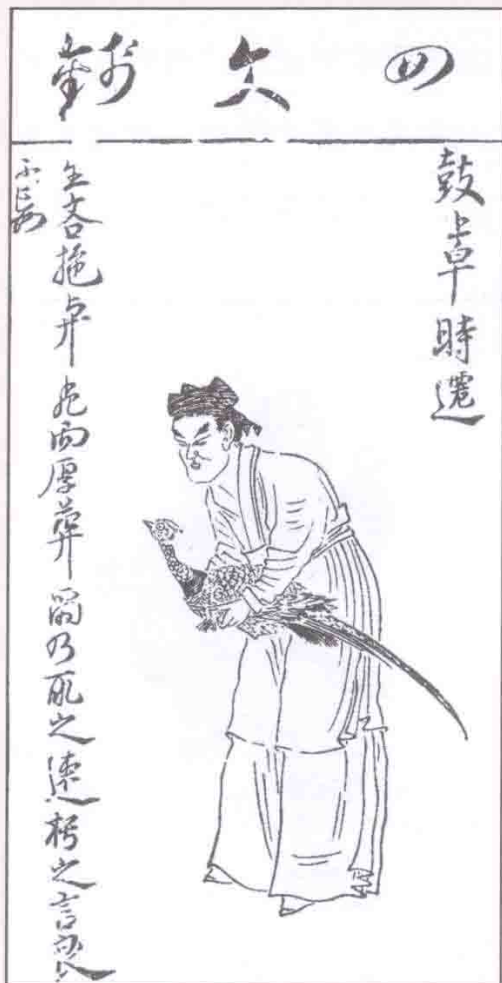 四文錢
鼓上蚤時遷
生吝施與死而厚葬爾乃取之速朽之言良